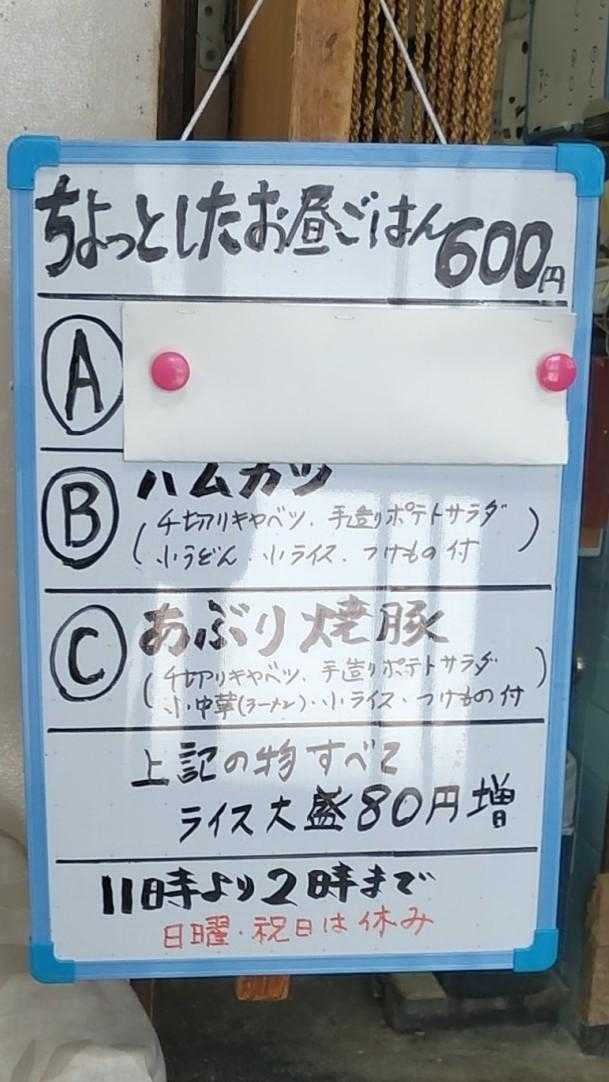 ちょっとしたお昼ごはん600円
Ⓐ
Ⓑ ハムカツ
(千切りキャベツ、手造りポテトサラダ
小うどん、小ライス、つけもの付)
Ⓒ あぶり焼豚
(千切りキャベツ、手造りポテトサラダ
小・中華(ラーメン)・小ライス・つけもの付)
上記の物すべて
ライス大盛80円増
11時より2時まで
日曜・祝日は休み